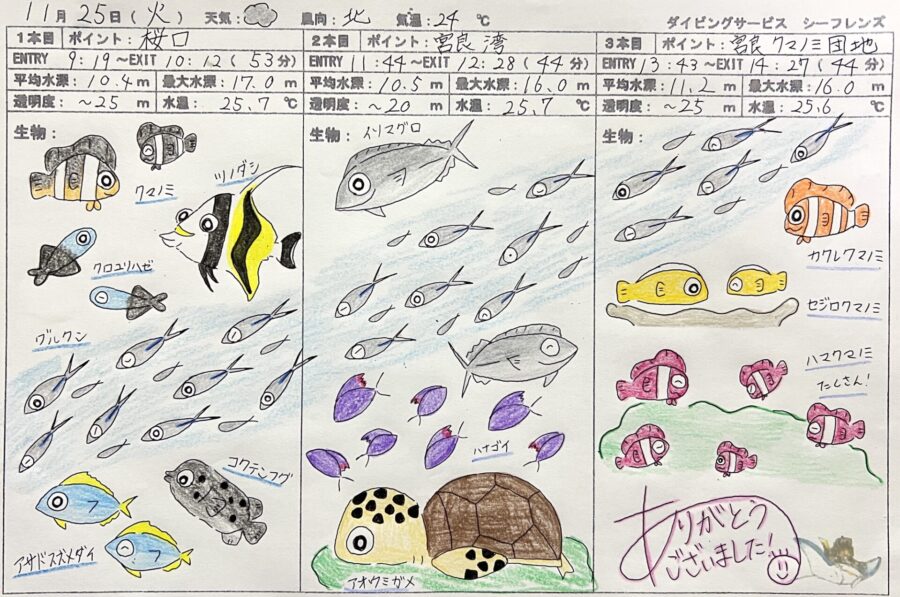 11月25日(火) 天気: 風向:北 気温:24℃ ダイビングサービス シーフレンズ
1本目 ポイント:桜口
ENTRY 9:19~EXIT 10:12(53分)
平均水深:10.4m 最大水深:17.0m
透明度:~25m 水温:25.7℃
生物:
クマノミ
ツノダシ
クロユリハゼ
グルクン
コクテンフグ
アサドスズメダイ
2本目 ポイント:宮良湾
ENTRY 11:44~EXIT 12:28(44分)
平均水深:10.5m 最大水深:16.0m
透明度:~20m 水温:25.7℃
生物:
イソマグロ
ハナゴイ
アオウミガメ
3本目 ポイント:宮良クマノミ団地
ENTRY 13:43~EXIT 14:27(44分)
平均水深:11.2m 最大水深:16.0m
透明度:~25m 水温:25.6℃
生物:
カクレクマノミ
セジロクマノミ
ハマクマノミ
たくさん!
ありがとう
ございました!